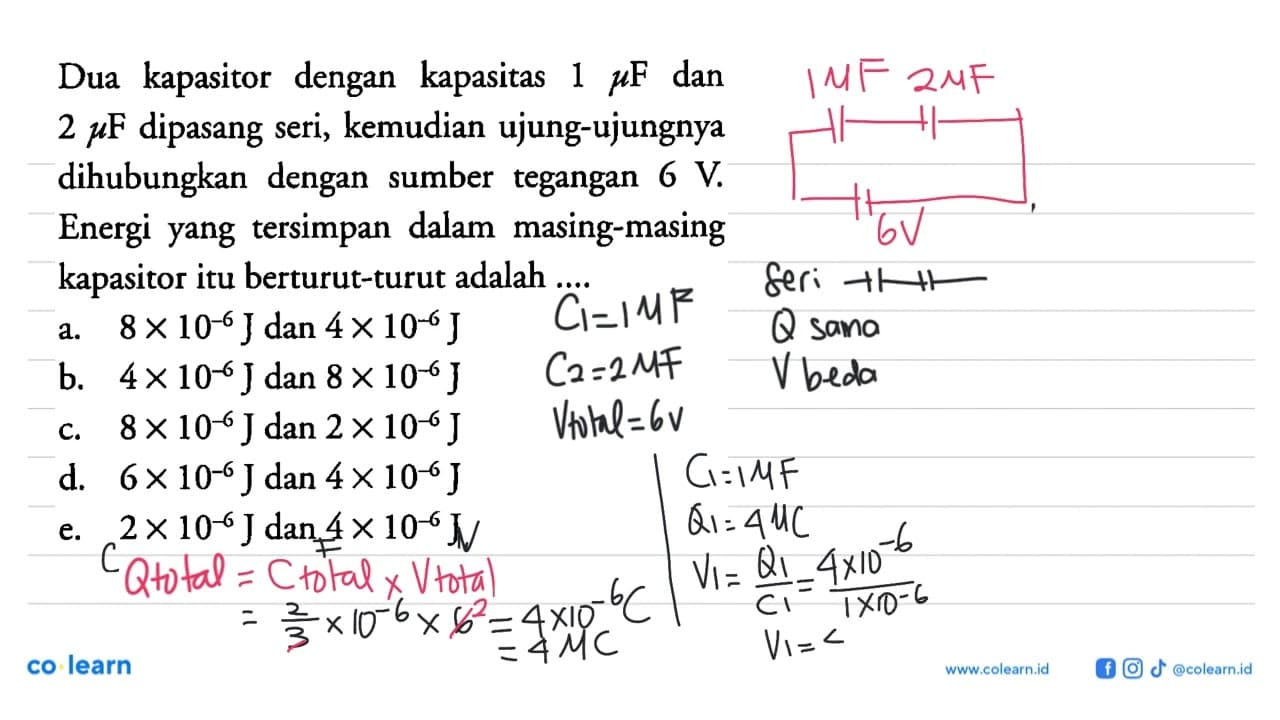 Dua kapasitor dengan kapasitas 1 μF dan
2 μF dipasang seri, kemudian ujung-ujungnya
dihubungkan dengan sumber tegangan 6 V.
Energi yang tersimpan dalam masing-masing
kapasitor itu berturut-turut adalah ....
a. 8 × 10⁻⁶ J dan 4 × 10⁻⁶ J
b. 4 × 10⁻⁶ J dan 8 × 10⁻⁶ J
c. 8 × 10⁻⁶ J dan 2 × 10⁻⁶ J
d. 6 × 10⁻⁶ J dan 4 × 10⁻⁶ J
e. 2 × 10⁻⁶ J dan 4 × 10⁻⁶ J
1 MF 2 MF
6V
Seri
Q sama
V beda
C1 = 1 MF
C2 = 2 MF
Vtotal = 6V
C F V
Qtotal = Ctotal x Vtotal
= 2/3 x 10⁻⁶ x 6 2 = 4x10⁻⁶ C
= 4 MC
C1 = 1 MF
Q1 = 4 MC
V1 = Q1/C1 = 4x10⁻⁶/1x10⁻⁶
V1 =
co learn
www.colearn.id
@colearn.id